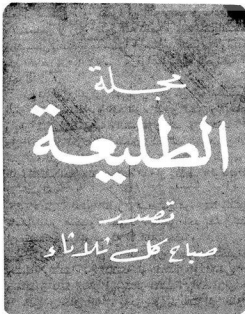 مجلة
الطليعة
تصدر
صباح كل ثلاثاء